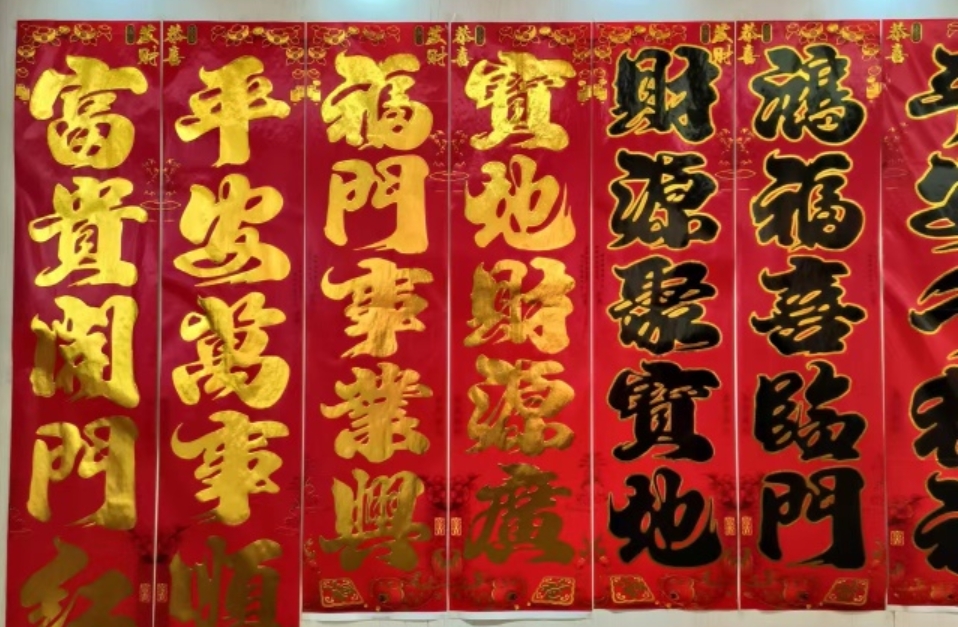 發財
富貴開門紅
恭喜
平安萬事順
發財
福門事業興
恭喜
寶地財源廣
發財
財源聚寶地
恭喜
鴻福喜臨門
恭喜